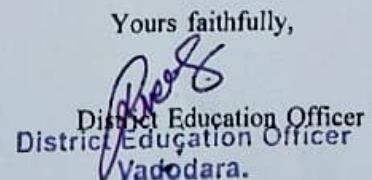 Yours faithfully,
District Education Officer
District Education Officer
Vadodara.